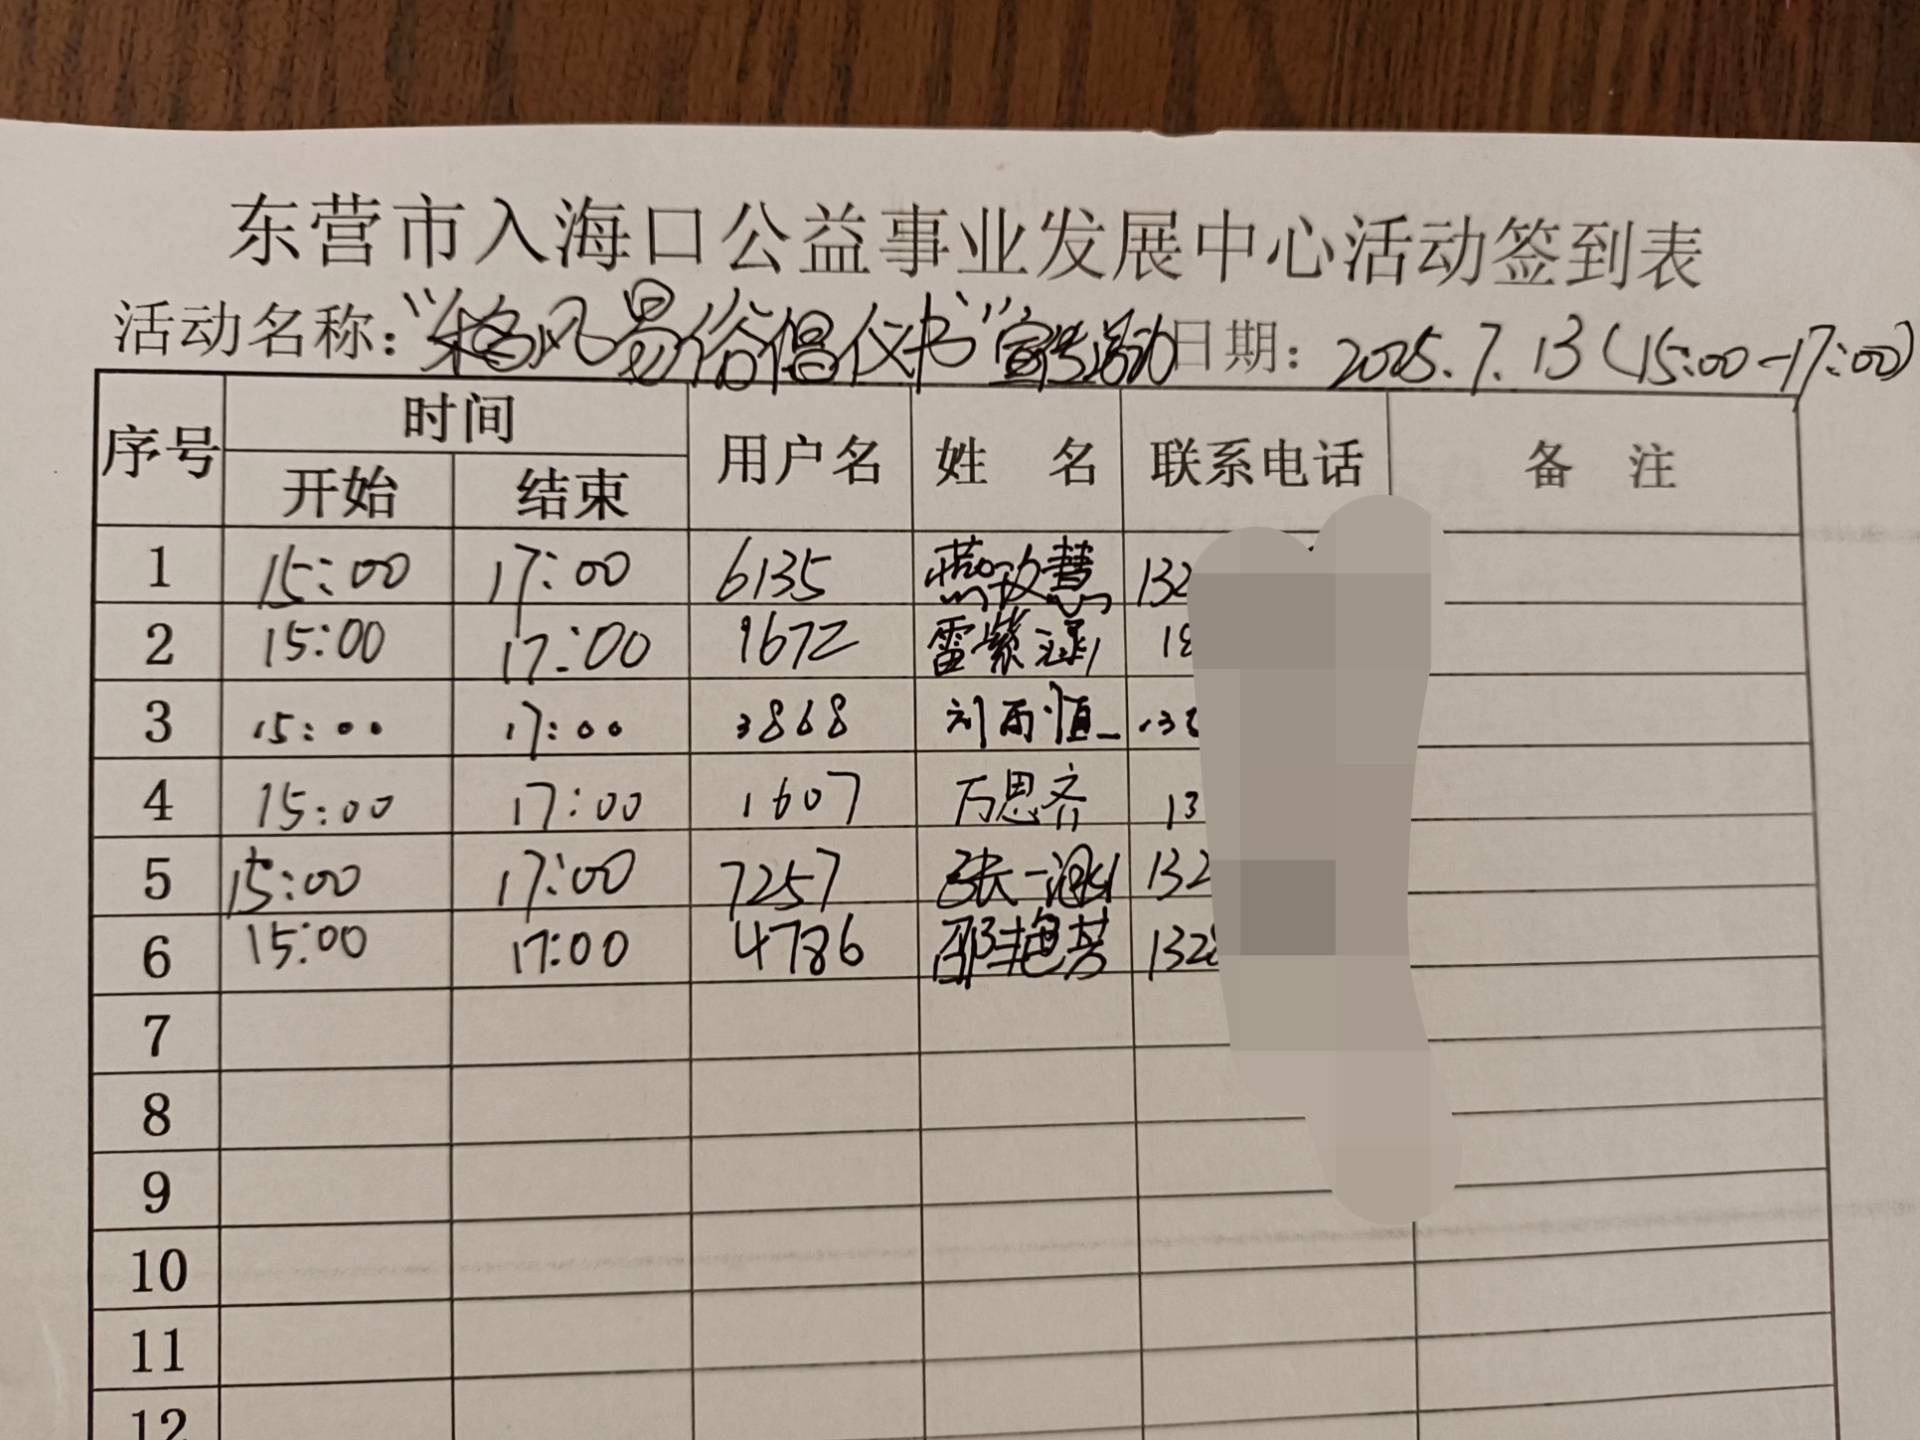 东营市入海口公益事业发展中心活动签到表
活动名称：“移风易俗倡仪书”宣传活动 日期：2025.7.13（15:00-17:00）
序号 时间 用户名 姓 名 联系电话 备 注
开始 结束
1 15:00 17:00 6135 燕 慧 132
2 15:00 17:00 9672 雷紫 18
3 15:00 17:00 3868 刘雨恒 138
4 15:00 17:00 1607 万思齐 13
5 15:00 17:00 7257 张一涵 132
6 15:00 17:00 4786 邵艳芳 1328
7
8
9
10
11
12